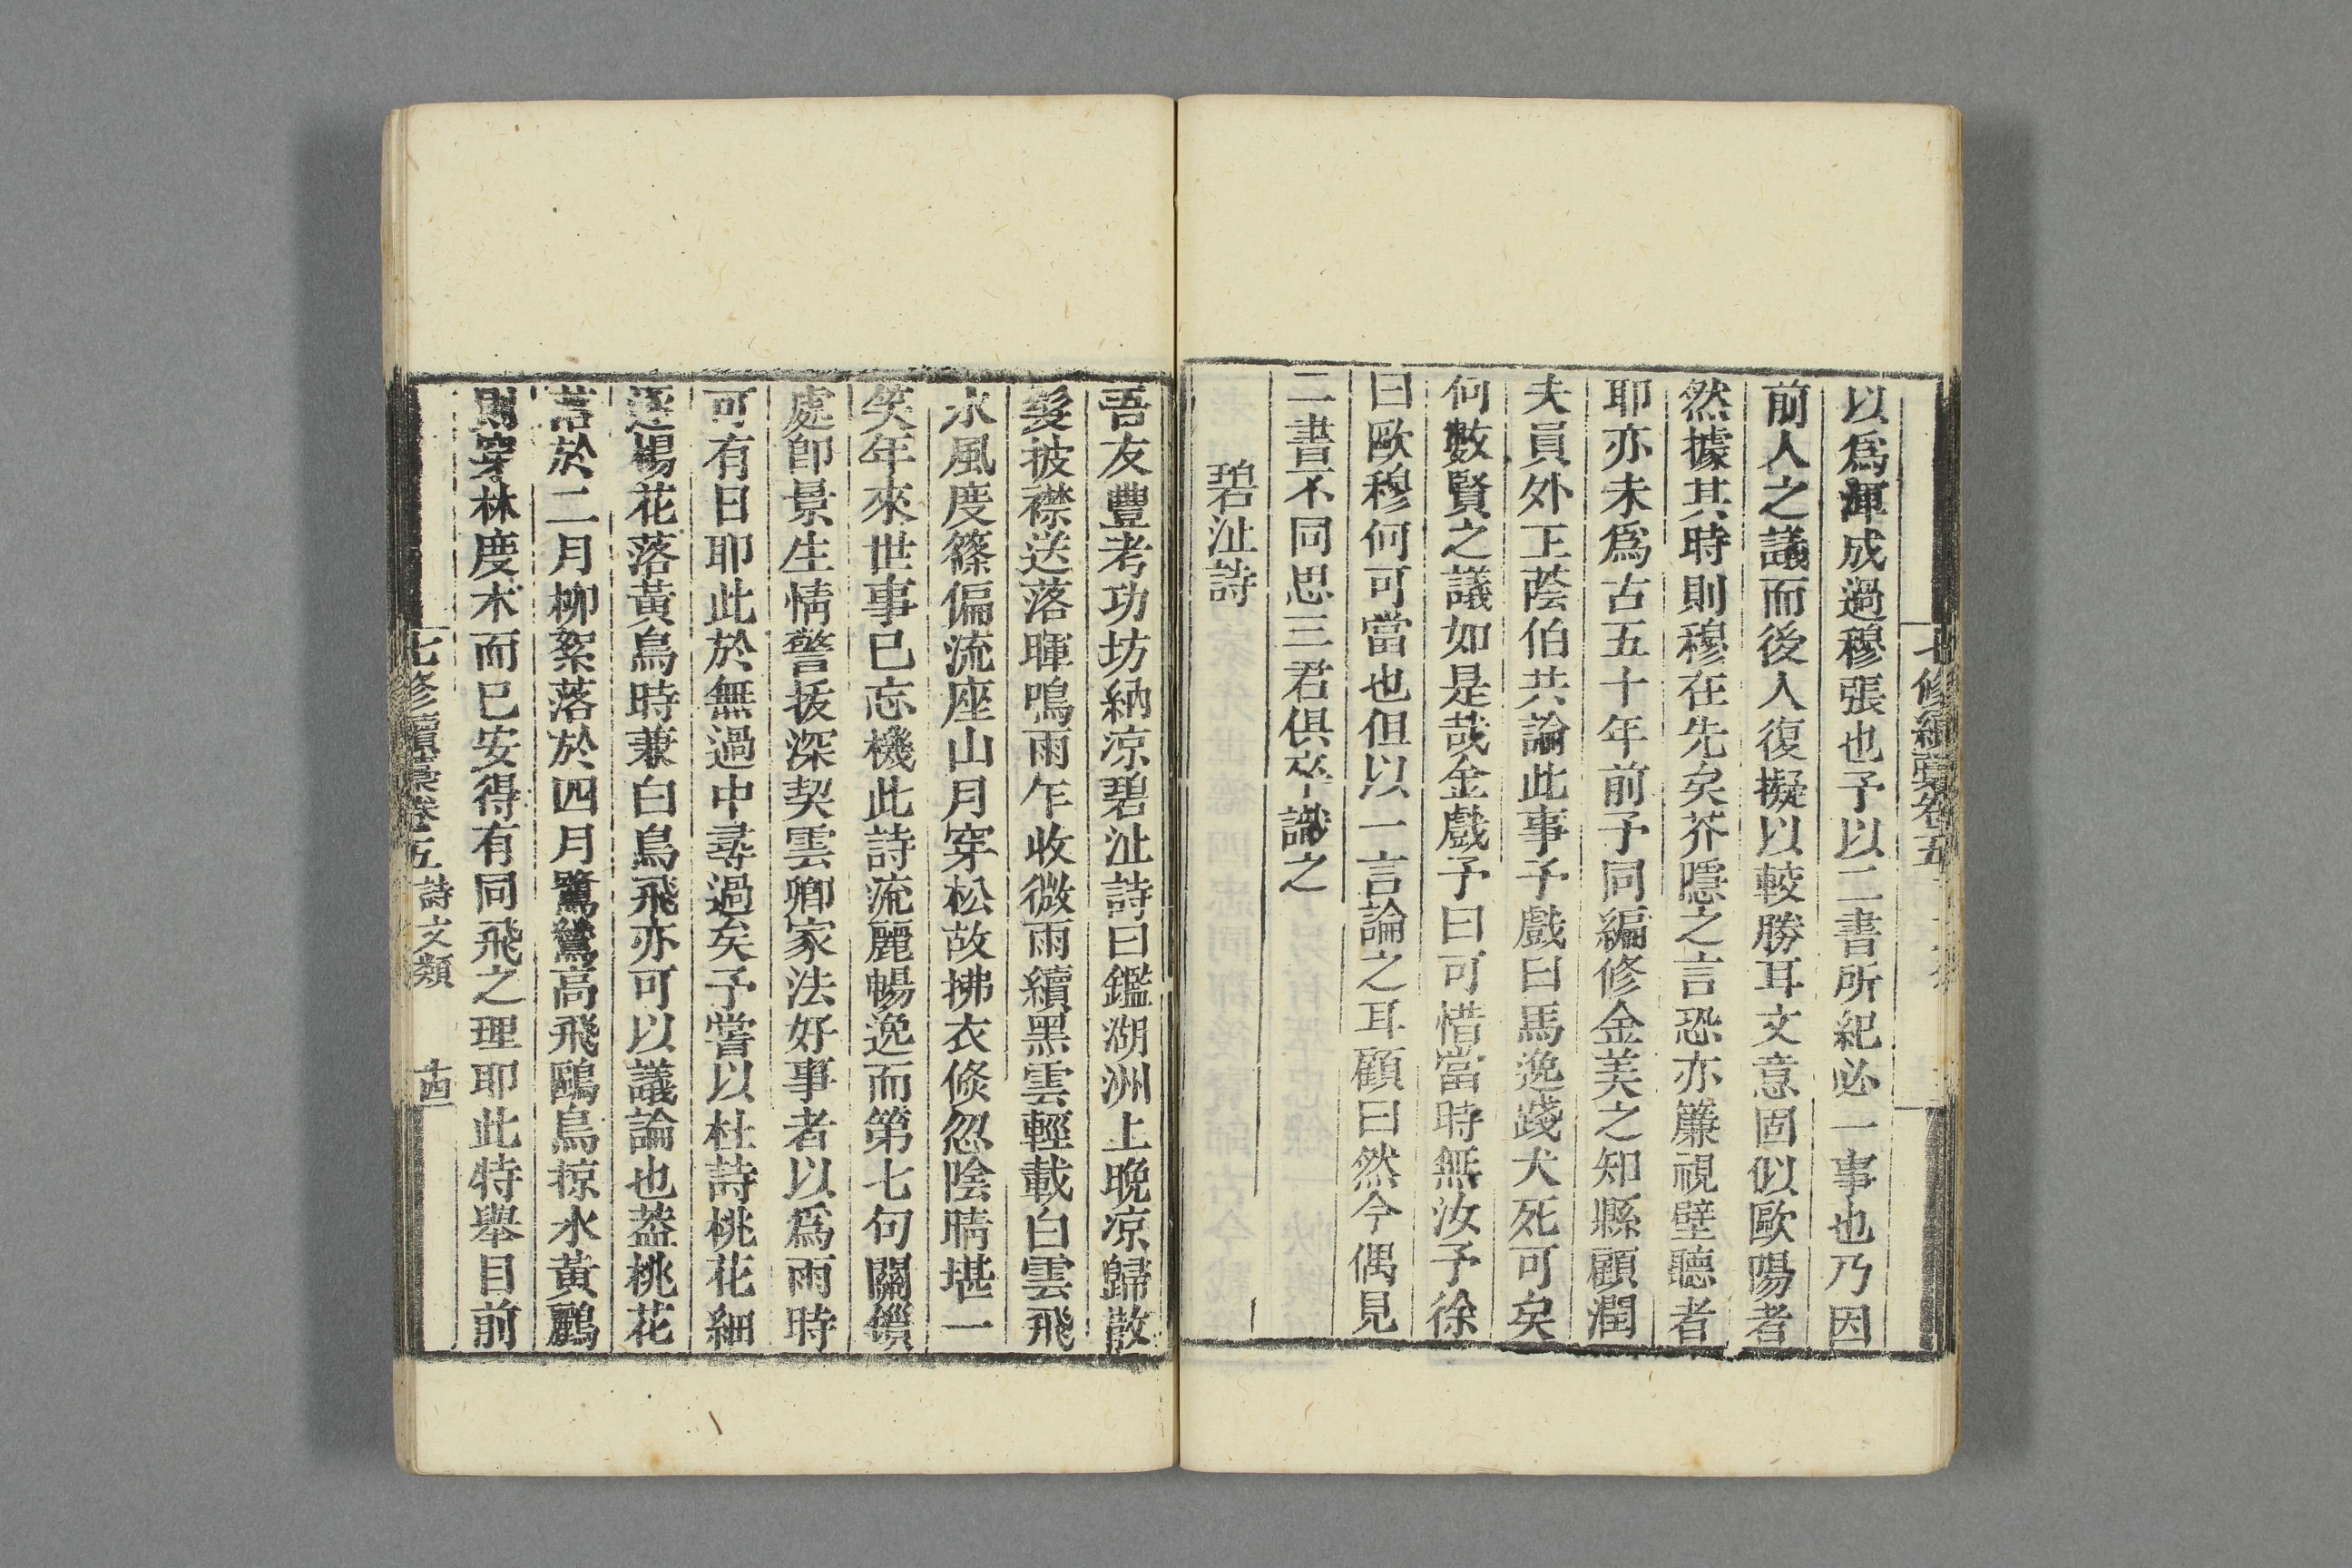 七修續藁卷五
以爲渾成過穆張也予以二書所紀必一事也乃因
前人之議而後人復擬以較勝耳文意固似歐陽者
然據其時則穆在先矣芥隱之言恐亦簾視壁聽者
耶亦未爲古五十年前予同編修金美之知縣顧潤
夫員外王蔭伯共論此事予戲曰馬逸踐犬死可矣
何數賢之議如是哉金戲予曰可惜當時無汝予徐
曰歐穆何可當也但以一言論之耳顧曰然今偶見
二書不同思三君俱卒識之
碧沚詩
吾友豐考功坊納凉碧沚詩曰鑑湖洲上晚凉歸散
髮披襟送落暉鳴雨乍收微雨續黑雲輕載白雲飛
水風度篠偏流座山月穿松故拂衣倐忽陰晴堪一
笑年來世事已忘機此詩流麗暢逸而第七句關鎖
處卽景生情警拔深契雲卿家法好事者以爲雨時
可有日耶此於無過中尋過矣予嘗以杜詩桃花細
逐楊花落黃鳥時兼白鳥飛亦可以議論也葢桃花
落於二月柳絮落於四月鷺鷥高飛鷗鳥掠水黃鸝
則穿林度木而已安得有同飛之理耶此特舉目前
七修續藁卷五 詩文類 十四